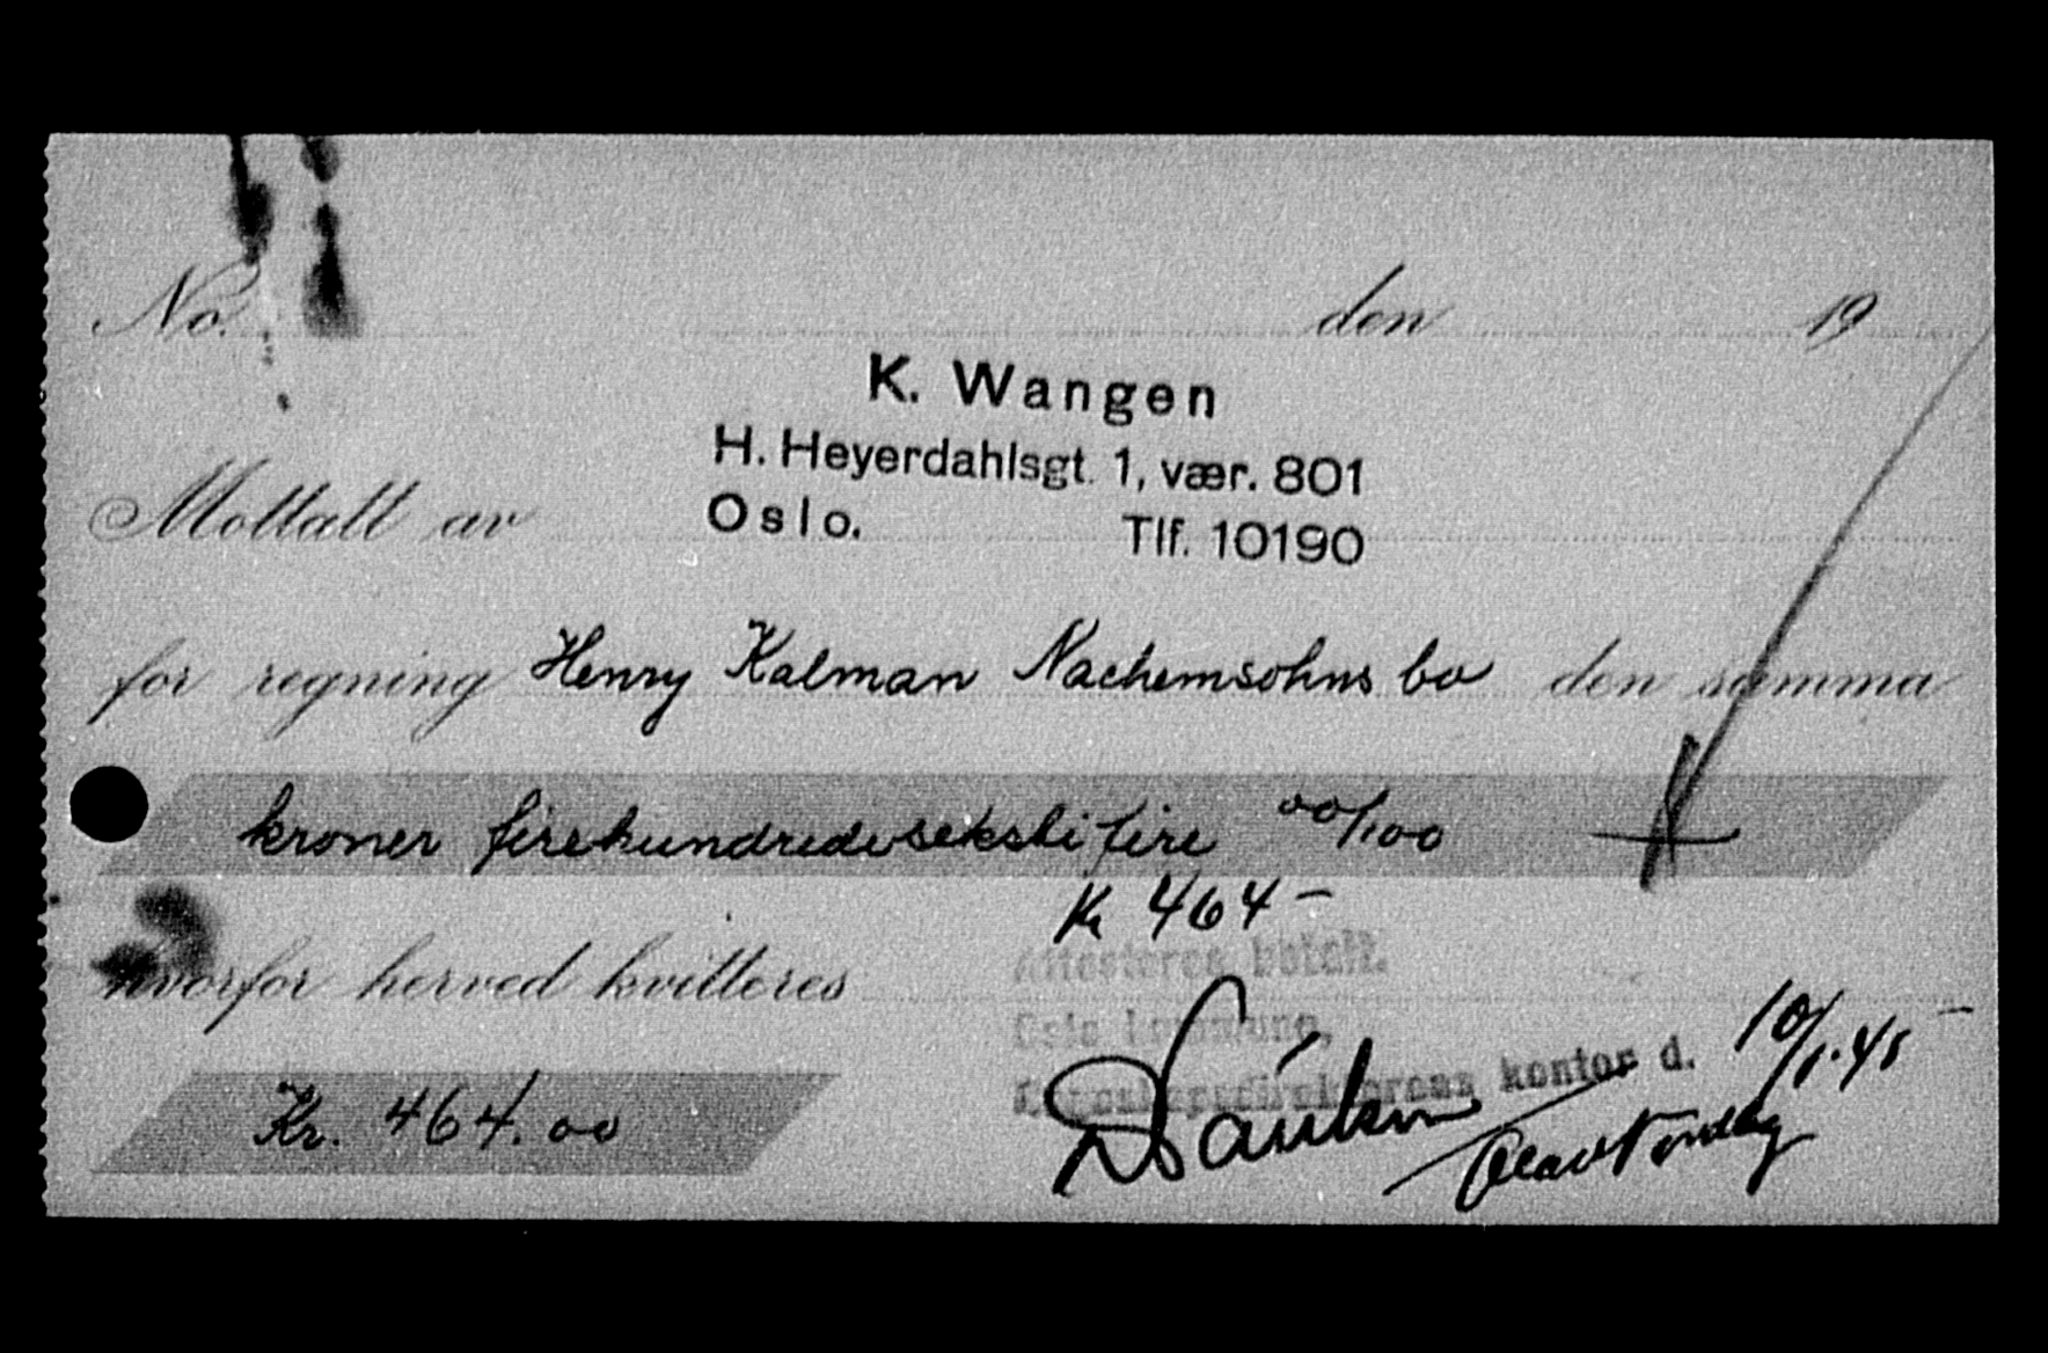 No. den 19
K. Wangen
H. Heyerdahlsgt. 1, vær. 801
Oslo. Tlf. 10190
Mottatt av
for regning Henry Kalman Nachemsohns bo den summa
kroner firehundredeosekstifire 00/100
Kr 464-
Attesteres betalt.
hvorfor herved kvitteres
Oslo kommune,
kontor d. 10/1.45
Kr. 464.00